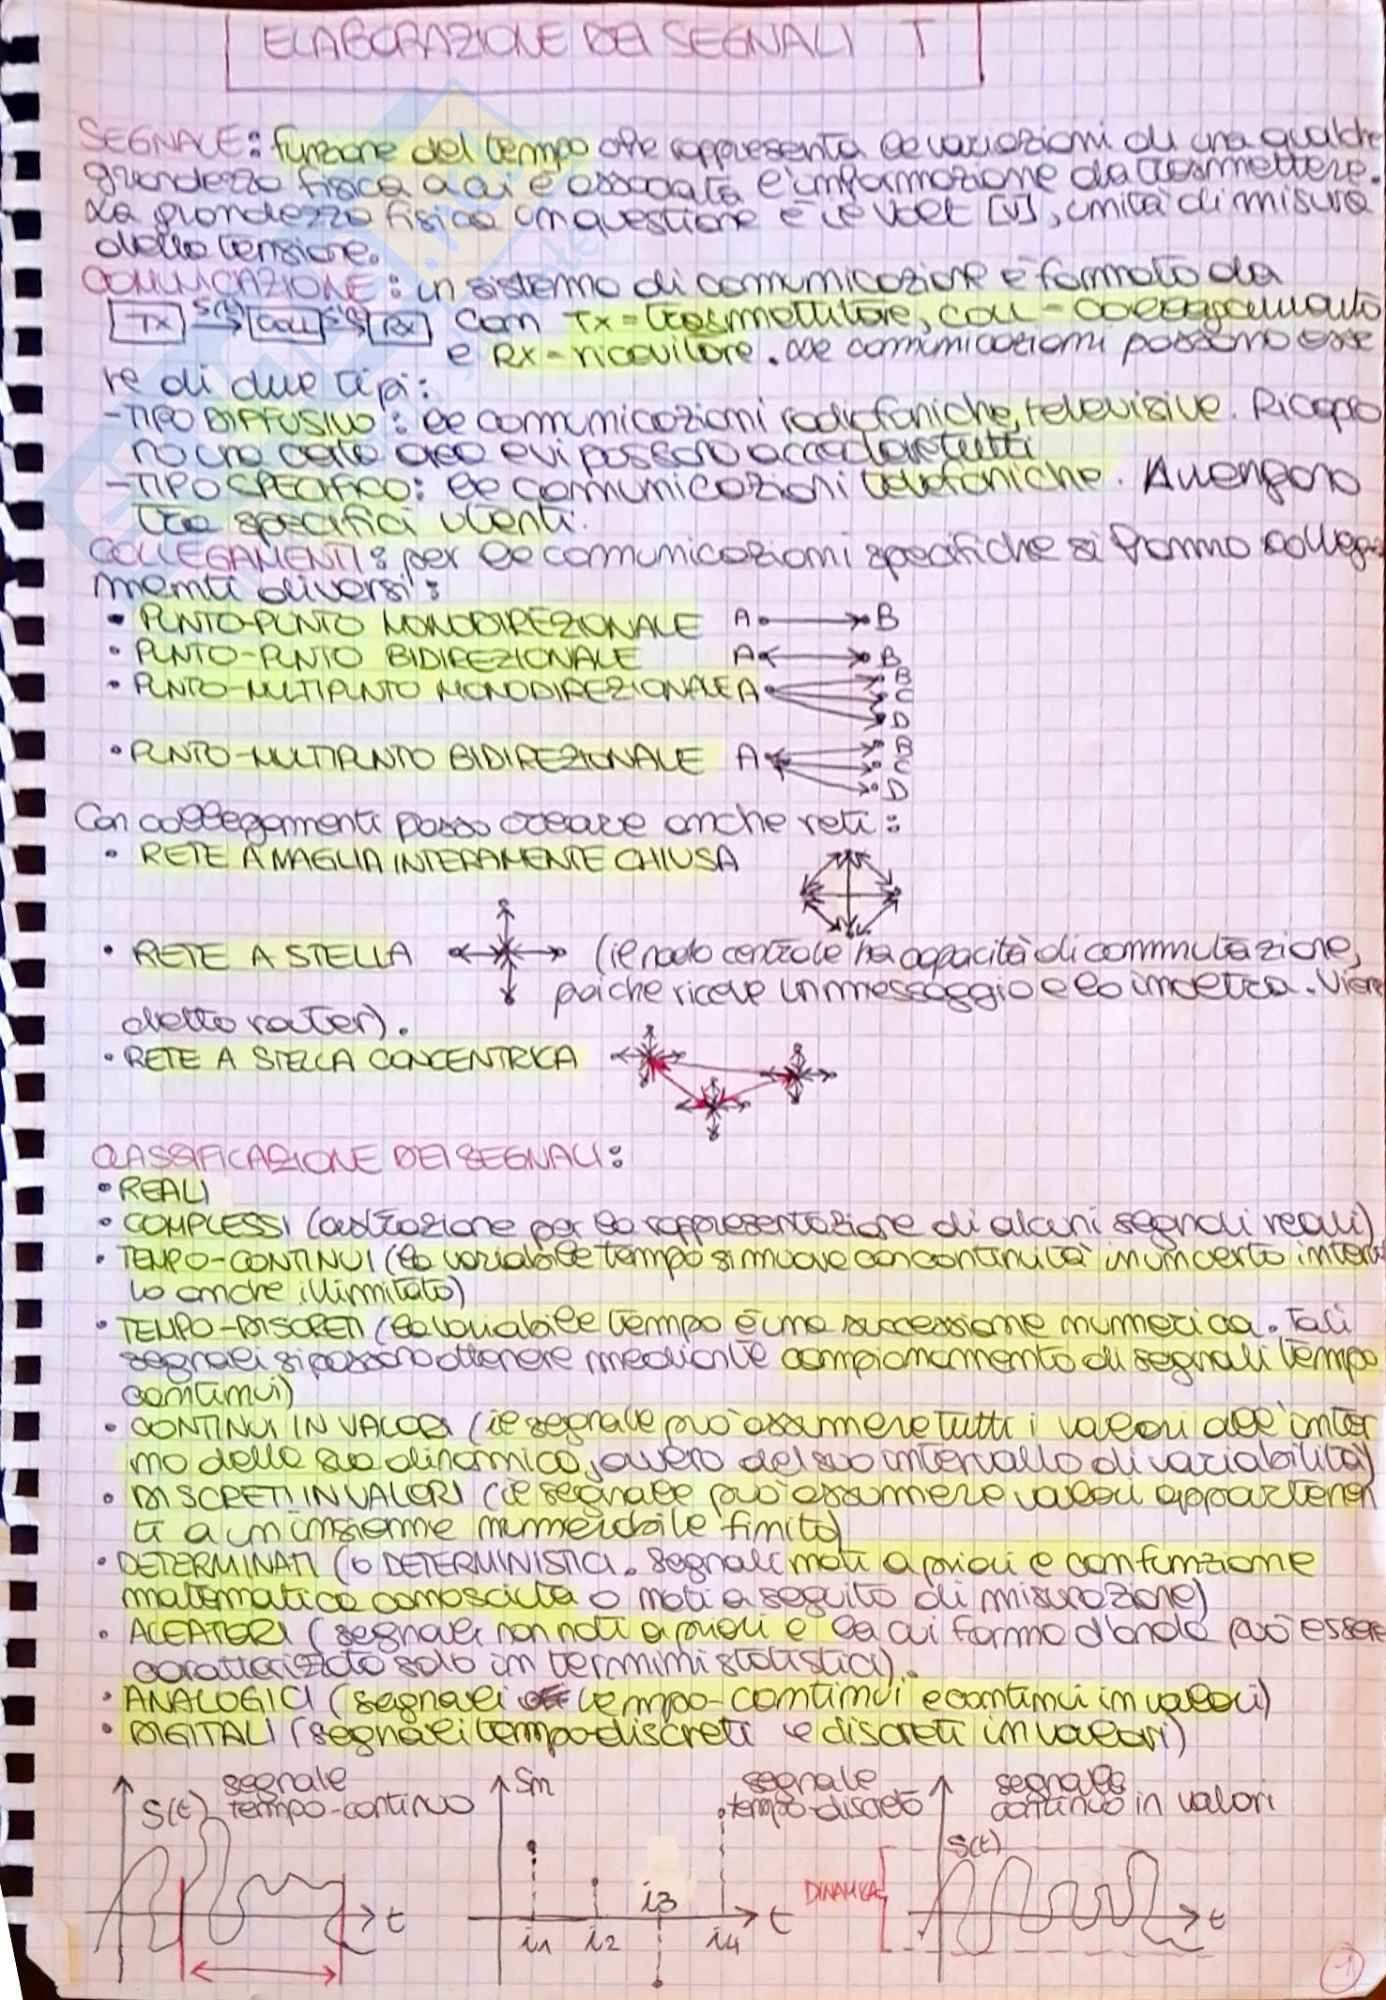 ELABORAZIONE DEI SEGNALI T
SEGNALE: funzione del tempo che rappresenta le variazioni di una qualche
grandezza fisica a cui è associata l'informazione da trasmettere.
La grandezza fisica in questione è il Volt [V], unità di misura
della tensione.
COMUNICAZIONE: un sistema di comunicazione è formato da
TX S(t) COLL S(t) RX con TX=trasmettitore, COLL=collegamento
e RX=ricevitore. Le comunicazioni possono esse
re di due tipi:
-TIPO DIFFUSIVO: le comunicazioni radiofoniche, televisive. Ricopro
no una certa area e vi possono accedere tutti
-TIPO SPECIFICO: le comunicazioni telefoniche. Avvengono
tra specifici utenti.
COLLEGAMENTI: per le comunicazioni specifiche si hanno collega
menti diversi:
• PUNTO-PUNTO MONODIREZIONALE A B
• PUNTO-PUNTO BIDIREZIONALE A B
• PUNTO-MULTIPUNTO MONODIREZIONALE A B C D
• PUNTO-MULTIPUNTO BIDIREZIONALE A B C D
Con collegamenti posso creare anche reti:
• RETE A MAGLIA INTERAMENTE CHIUSA
• RETE A STELLA (il nodo centrale ha capacità di commutazione,
poiché riceve un messaggio e lo inoltra. Viene
detto router).
• RETE A STELLA CONCENTRICA
CLASSIFICAZIONE DEI SEGNALI:
• REALI
• COMPLESSI (astrazione per la rappresentazione di alcuni segnali reali)
• TEMPO-CONTINUI (la variabile tempo si muove con continuità in un certo interval
lo anche illimitato)
• TEMPO-DISCRETI (la variabile tempo è una successione numerica. Tali
segnali si possono ottenere mediante campionamento di segnali tempo
continui)
• CONTINUI IN VALORI (il segnale può assumere tutti i valori all'inter
no della sua dinamica, ovvero del suo intervallo di variabilità)
• DISCRETI IN VALORI (il segnale può assumere valori appartenen
ti a un insieme numerabile finito)
• DETERMINATI (o DETERMINISTICI. segnali noti a priori e con funzione
matematica conosciuta o noti a seguito di misurazione)
• ALEATORI (segnali non noti a priori e la cui forma d'onda può essere
caratterizzata solo in termini statistici).
• ANALOGICI (segnali tempo-continui e continui in valori)
• DIGITALI (segnali tempo-discreti e discreti in valori)
segnale
tempo-continuo
S(t)
t
Sn
segnale
tempo-discreto
i1 i2 i3 i4 t
segnale
continuo in valori
S(t)
DINAMICA
t
1